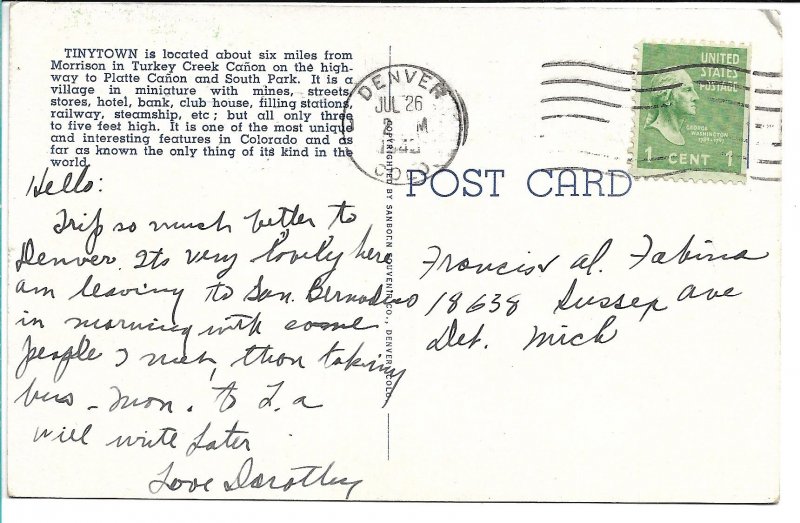 TINYTOWN is located about six miles from
Morrison in Turkey Creek Cañon on the high-
way to Platte Cañon and South Park. It is a
village in miniature with mines, streets,
stores, hotel, bank, club house, filling stations,
railway, steamship, etc; but all only three
to five feet high. It is one of the most unique
and interesting features in Colorado and as
far as known the only thing of its kind in the
world.
Hello:
Trip so much better to
Denver. Its very "lovely" here
am leaving to San. Bernadino
in morning with some
people I met, then taking
bus - Mon. to L.a
will write later
Love Dorothy
DENVER
JUL 26
M
COLO.
UNITED
STATES
POSTAGE
GEORGE
WASHINGTON
1789-1797
1 CENT 1
POST CARD
COPYRIGHTED BY SANBORN SOUVENIR CO., DENVER, COLO.
Francis Al. Fabina
18638 Sussex ave
Det. Mich